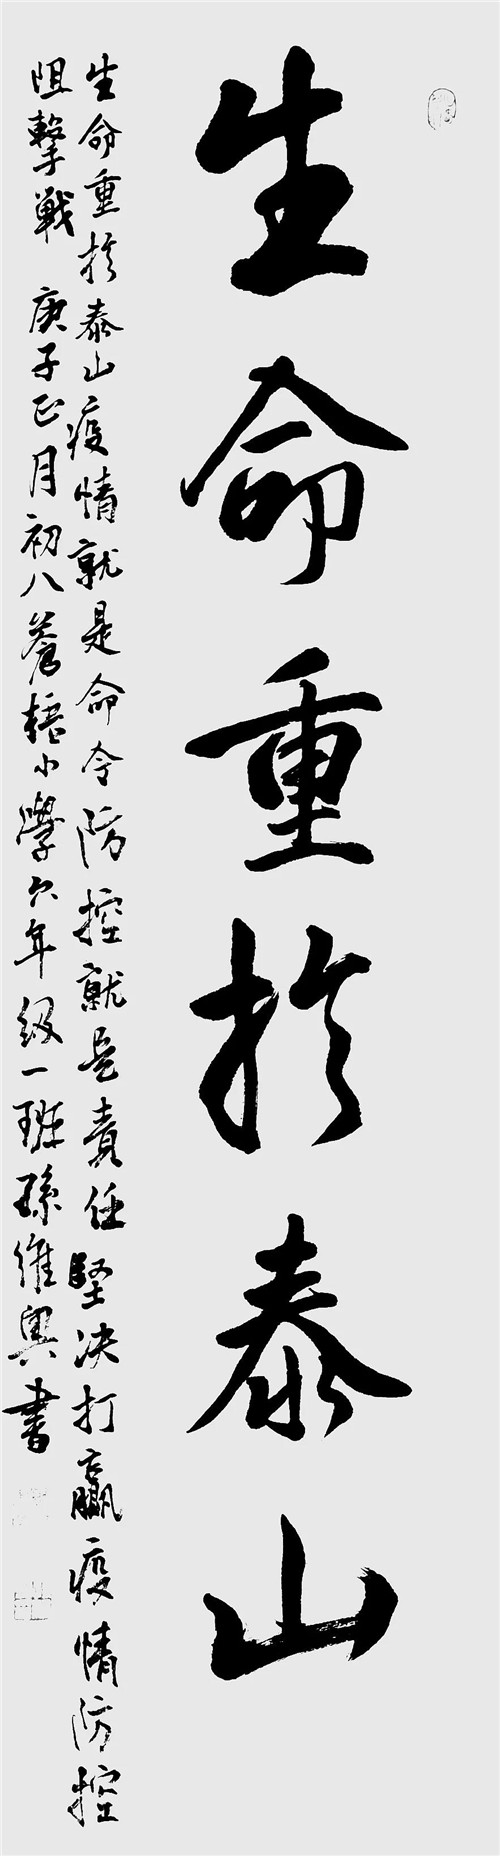 生命重於泰山
生命重於泰山疫情就是命令防控就是責任堅决打贏疫情防控
阻擊戰 庚子正月初八蒼梧小學六年级一班孫維奥書